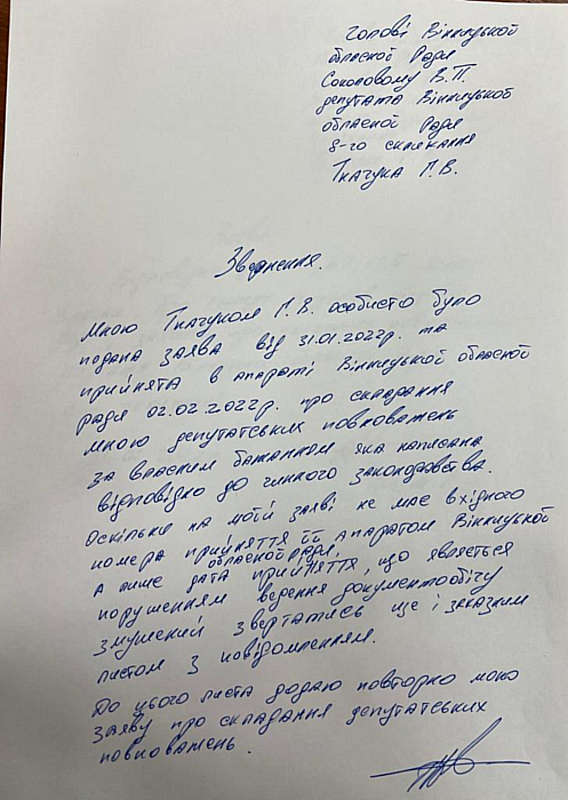 Голові Вінницької
обласної Ради
Соколовому В.П.
депутата Вінницької
обласної Ради
8-го скликання
Ткачука Г.В.
Звернення.
Мною Ткачуком Г. В. особисто було
подана заява від 31.01.2022р. та
прийнята в апараті Вінницької обласної
ради 02.02.2022р. про складання
мною депутатських повноважень
за власним бажанням яка написана
відповідно до чинного законодавства.
Оскільки на моїй заяві не має вхідного
номера прийняття її апаратом Вінницької
обласної ради,
а лише дата прийняття, що являється
порушенням ведення документообігу
змушений звертатись ще і заказним
листом з повідомленням.
До цього листа додаю повторно мою
заяву про складання депутатських
повноважень.